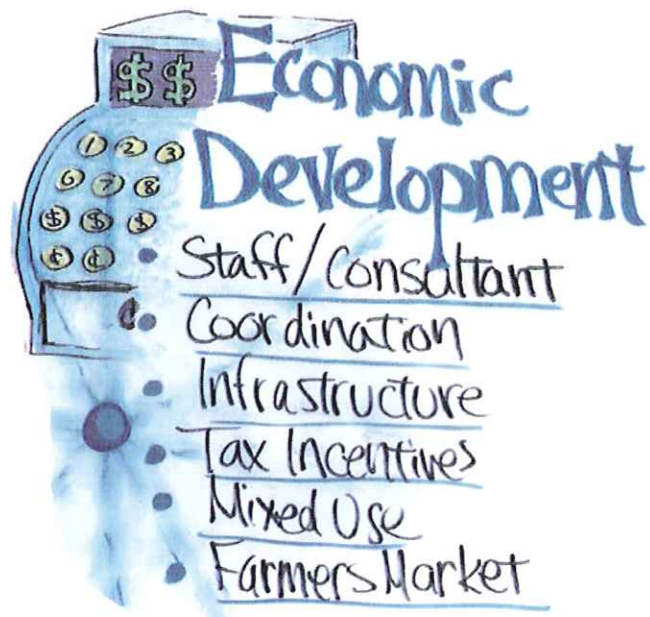 $ $ Economic
Development
1 2 3
6 7 8
$ $ $
¢ ¢
• Staff/Consultant
• Coordination
• Infrastructure
• Tax Incentives
• Mixed Use
• Farmers Market